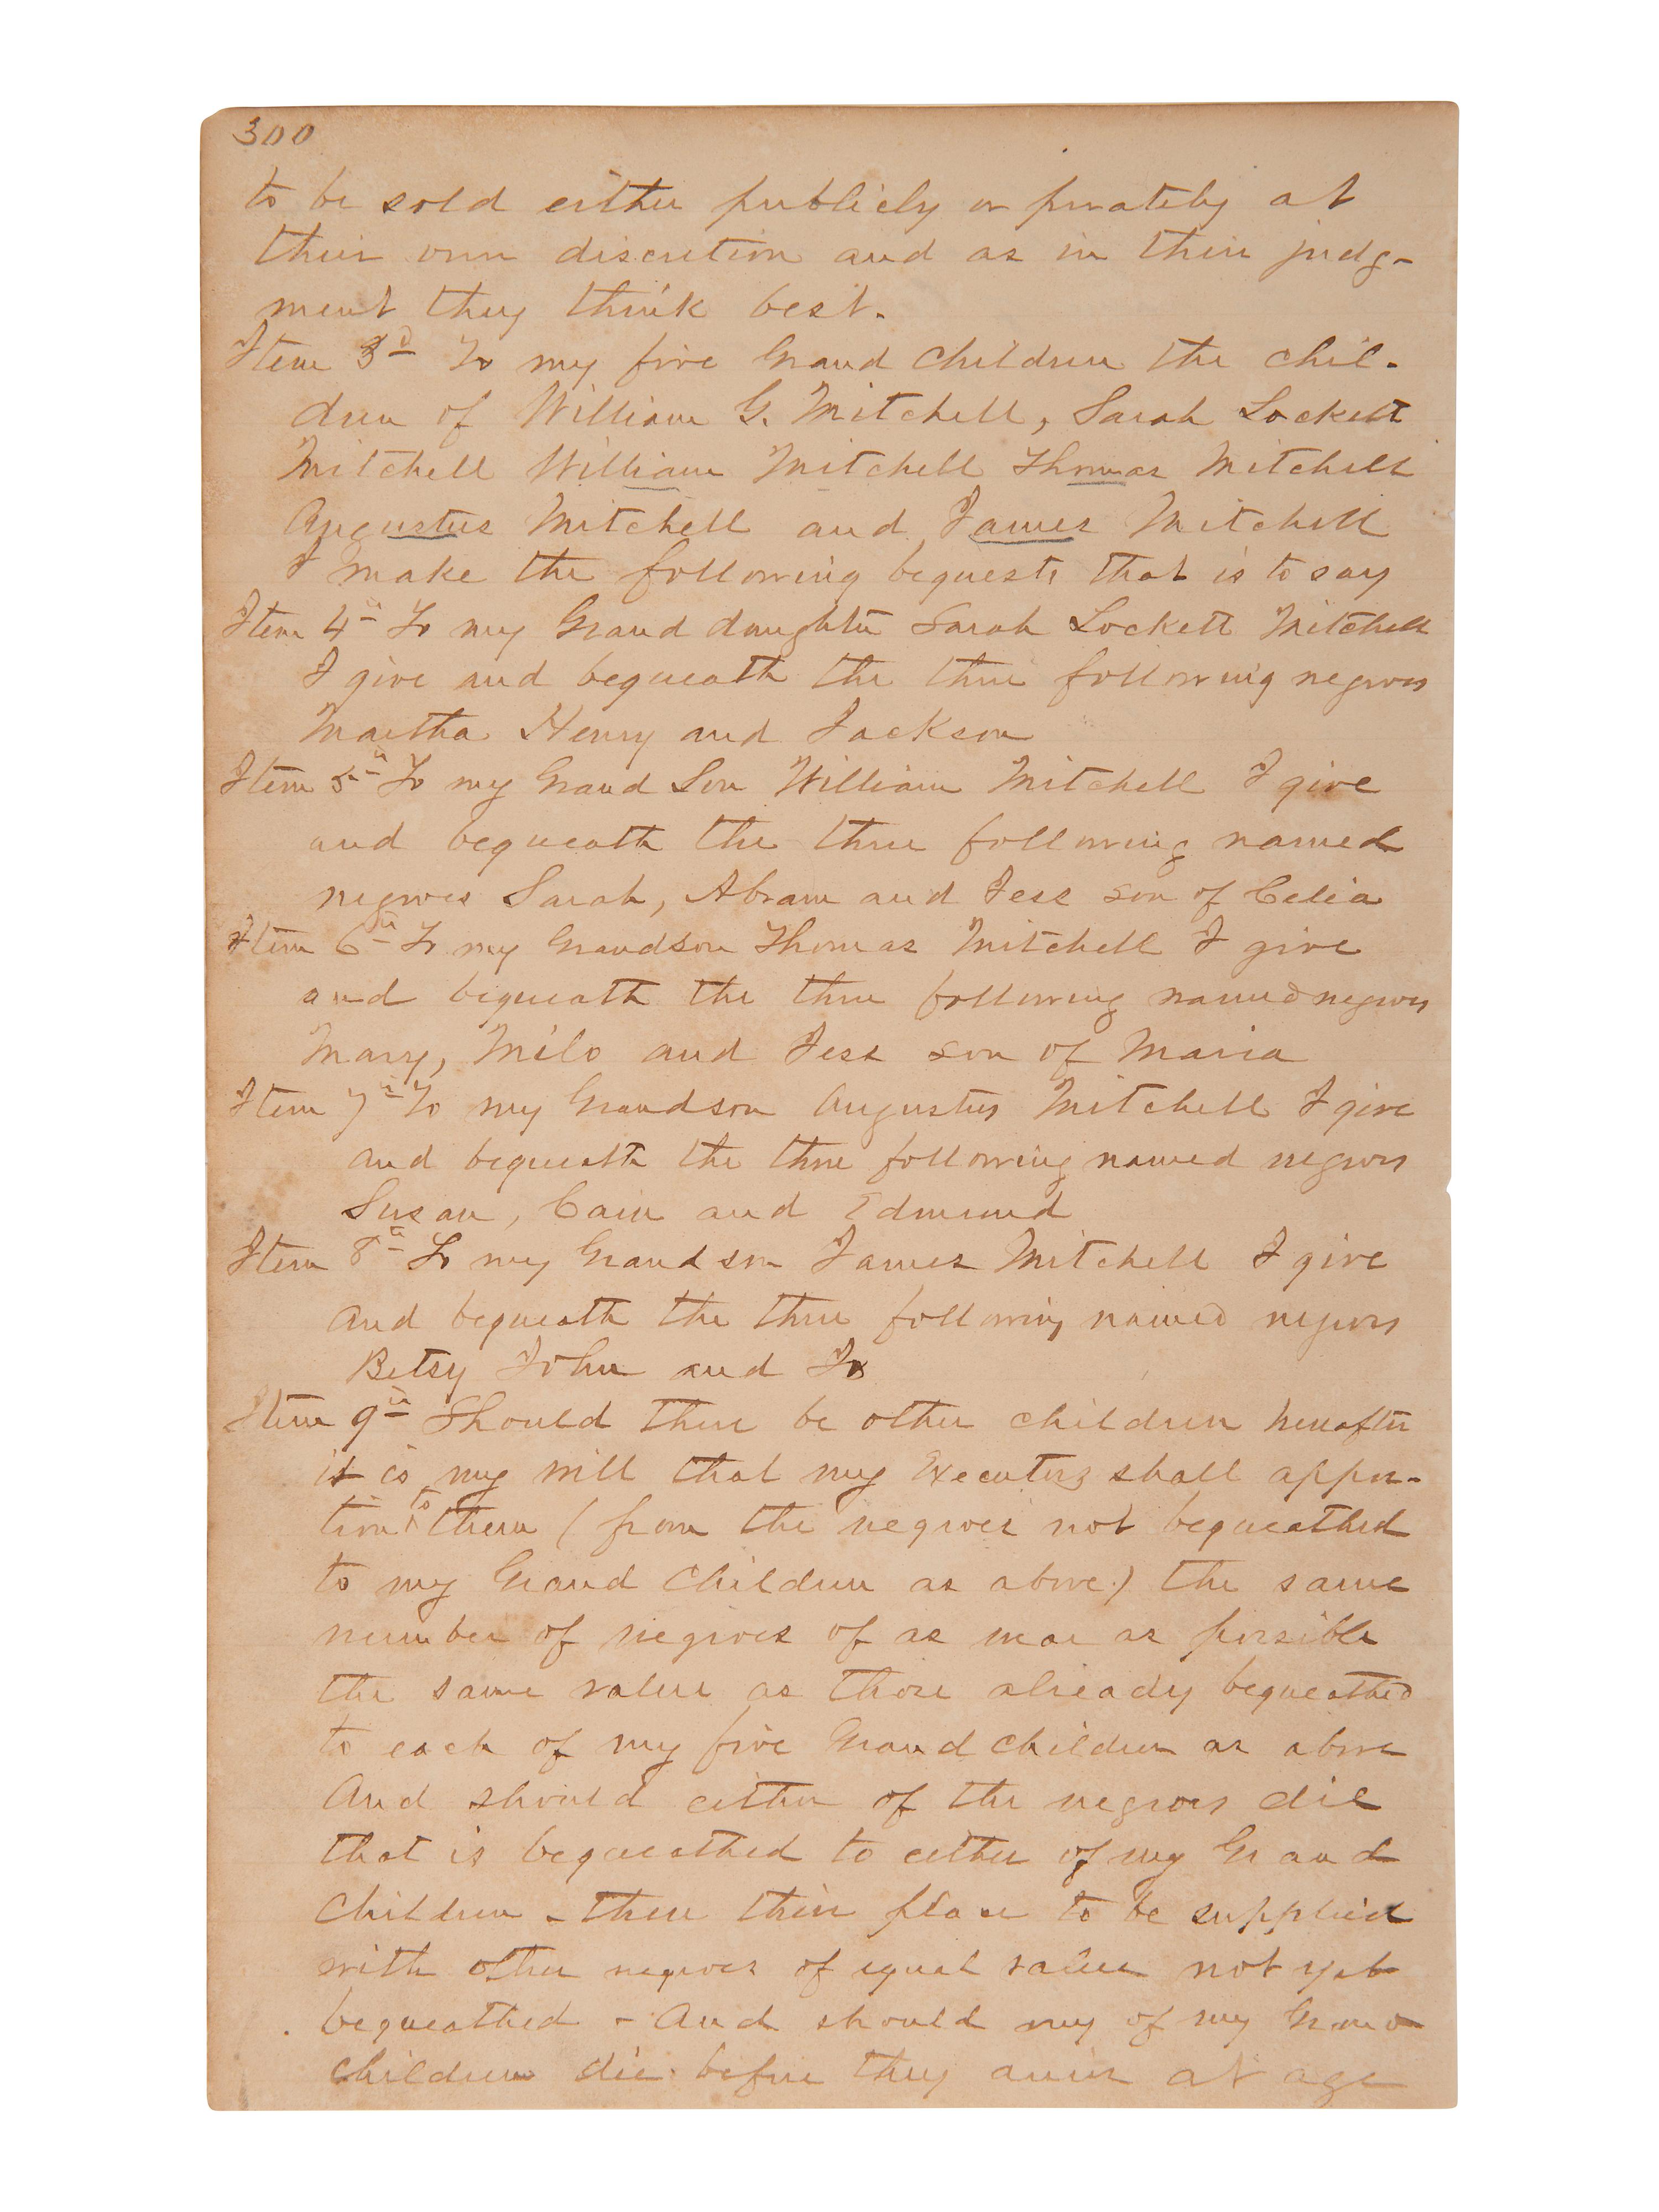 300
to be sold either publicly or privately at
their own discretion and as in their judg-
ment they think best.
Item 3d To my five Grand Children the chil-
dren of William G. Mitchell, Sarah Lockett
Mitchell William Mitchell Thomas Mitchell
Augustus Mitchell and James Mitchell
I make the following bequests that is to say
Item 4th To my Grand daughter Sarah Lockett Mitchell
I give and bequeath the three following negroes
Martha Henry and Jackson
Item 5th To my Grand Son William Mitchell I give
and bequeath the three following named
negroes Sarah, Abram and Jess son of Celia
Item 6th To my Grandson Thomas Mitchell I give
and bequeath the three following named negroes
Mary, Milo and Jess son of Maria
Item 7th To my Grandson Augustus Mitchell I give
and bequeath the three following named negroes
Susan, Cain and Edmund
Item 8th To my Grandson James Mitchell I give
and bequeath the three following named negroes
Betsy John and Jo
Item 9th Should there be other children hereafter
it is my will that my Executors shall appor-
tion to them (from the negroes not bequeathed
to my Grand Children as above) the same
number of negroes of as near as possible
the same value as those already bequeathed
to each of my five Grand children as above
And should either of the negroes die
that is bequeathed to either of my Grand
Children - there their place to be supplied
with other negroes of equal value not yet
bequeathed - And should any of my Grand
children die before they arive at age